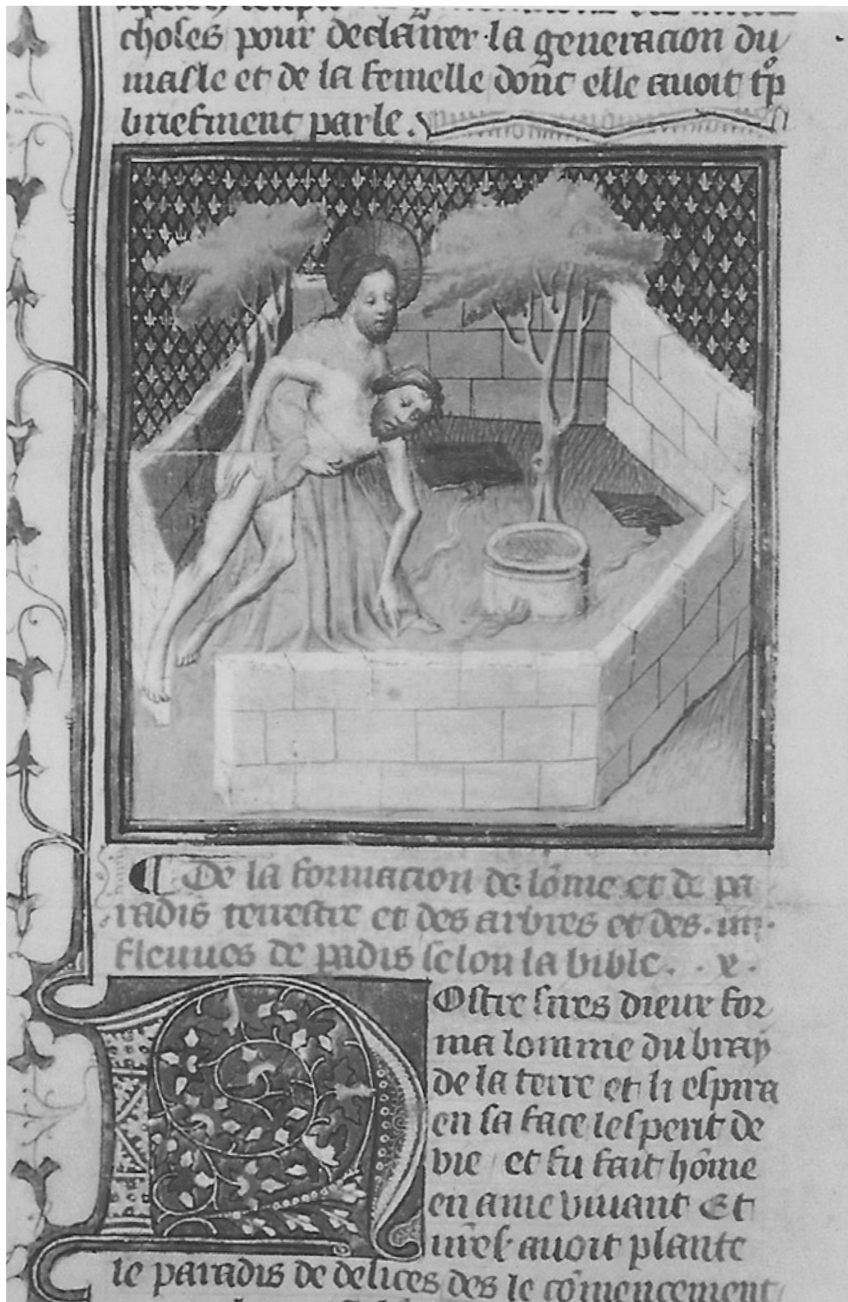 choses pour declairer la generacion du
masle et de la femelle dont elle avoit tp
briefment parle.
De la formacion de lõme et de pa
radis terrestre et des arbres et des .iiii.
fleuves de padis selon la bible. . v.
Ostre sires dieux for
ma lomme du bray
de la terre et li espira
en sa face lesperit de
vie et fu fait hõme
en ame vivant Et
avoit plante
le paradis de delices des le cõmencement